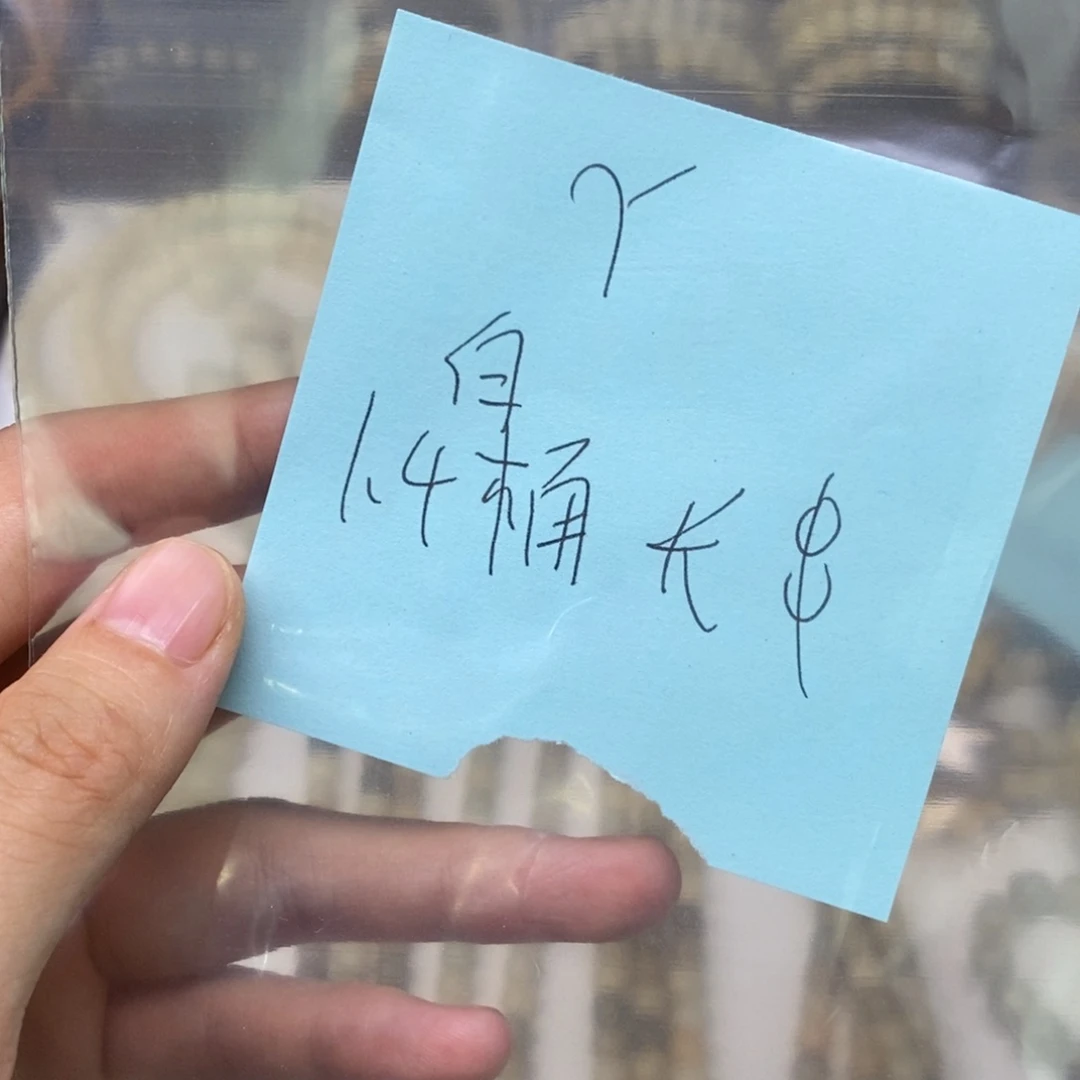 Y
白
1.4桶 长串